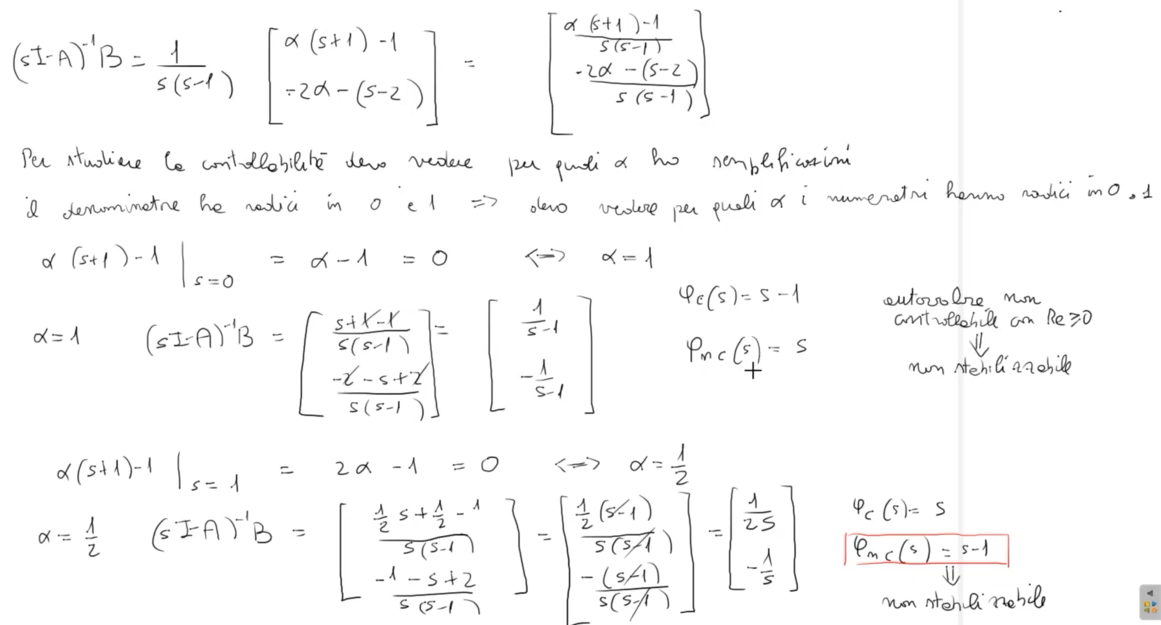 (sI-A)⁻¹B = 1/(s(s-1)) [α(s+1)-1 ; -2α-(s-2)] = [(α(s+1)-1)/(s(s-1)) ; (-2α-(s-2))/(s(s-1))]
Per studiare la controllabilità devo vedere per quali α ho semplificazioni
il denominatore ha radici in 0 e 1 => devo vedere per quali α i numeratori hanno radici in 0 o 1
α(s+1)-1 |s=0 = α-1 = 0 <=> α=1
α=1 (sI-A)⁻¹B = [(s+1-1)/(s(s-1)) ; (-2-s+2)/(s(s-1))] = [1/(s-1) ; -1/(s-1)]
φc(s) = s-1
φnc(s) = s
autovalore non
controllabile con Re≥0
⇓
non stabilizzabile
α(s+1)-1 |s=1 = 2α-1 = 0 <=> α=1/2
α=1/2 (sI-A)⁻¹B = [(1/2 s+1/2-1)/(s(s-1)) ; (-1-s+2)/(s(s-1))] = [1/2(s-1)/(s(s-1)) ; -(s-1)/(s(s-1))] = [1/(2s) ; -1/s]
φc(s) = s
φnc(s) = s-1
⇓
non stabilizzabile